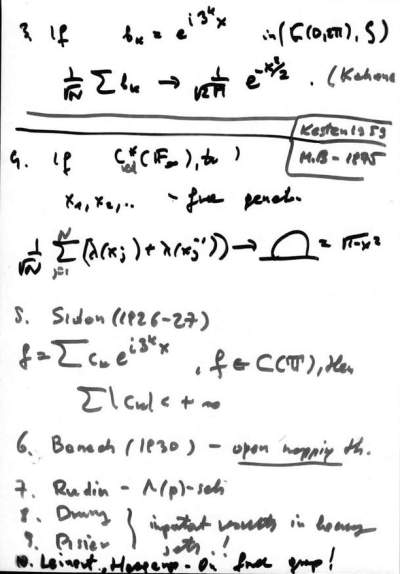 3. If b_k = e^{i3^k x} in (C(0,2π), ∫)
1/√N ∑ b_k → 1/√2π e^{-x²/2} . (Kahane
Kesten 1959
4. If C*_red(F_∞), tr )
M.B - 1975
x_1, x_2, .. - free generat.
1/√N ∑_{j=1}^{N} (λ(x_j) + λ(x_j^{-1})) →
5. Sidon (1926-27)
f = ∑ c_k e^{i3^k x} , f ∈ C(𝕋), then
∑ |c_k| < +∞
6. Banach (1930) - open mapping th.
7. Rudin - Λ(p)-sets
8. Drury } important results in
9. Pisier sets..!
10. Leinert, Haagerup - On free group!